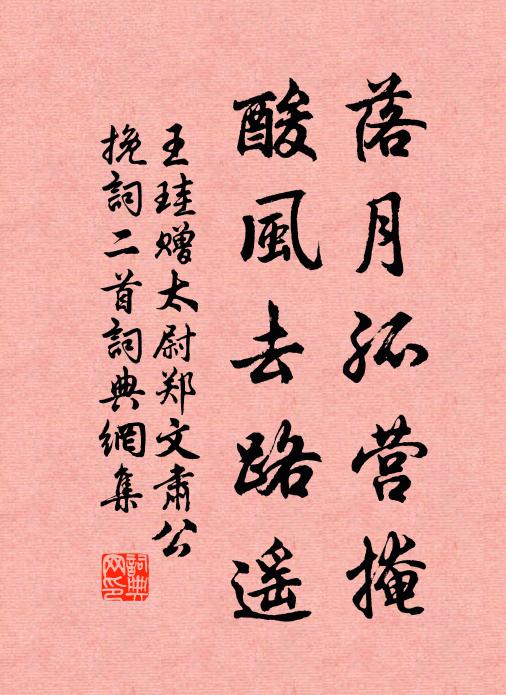 落月孤营掩
酸風去路遥
王珪赠太尉郑文肃公
挽詞二首詞典網集
詞典
网印